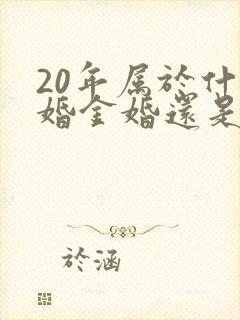 20年属於什
婚金婚還是
於涵